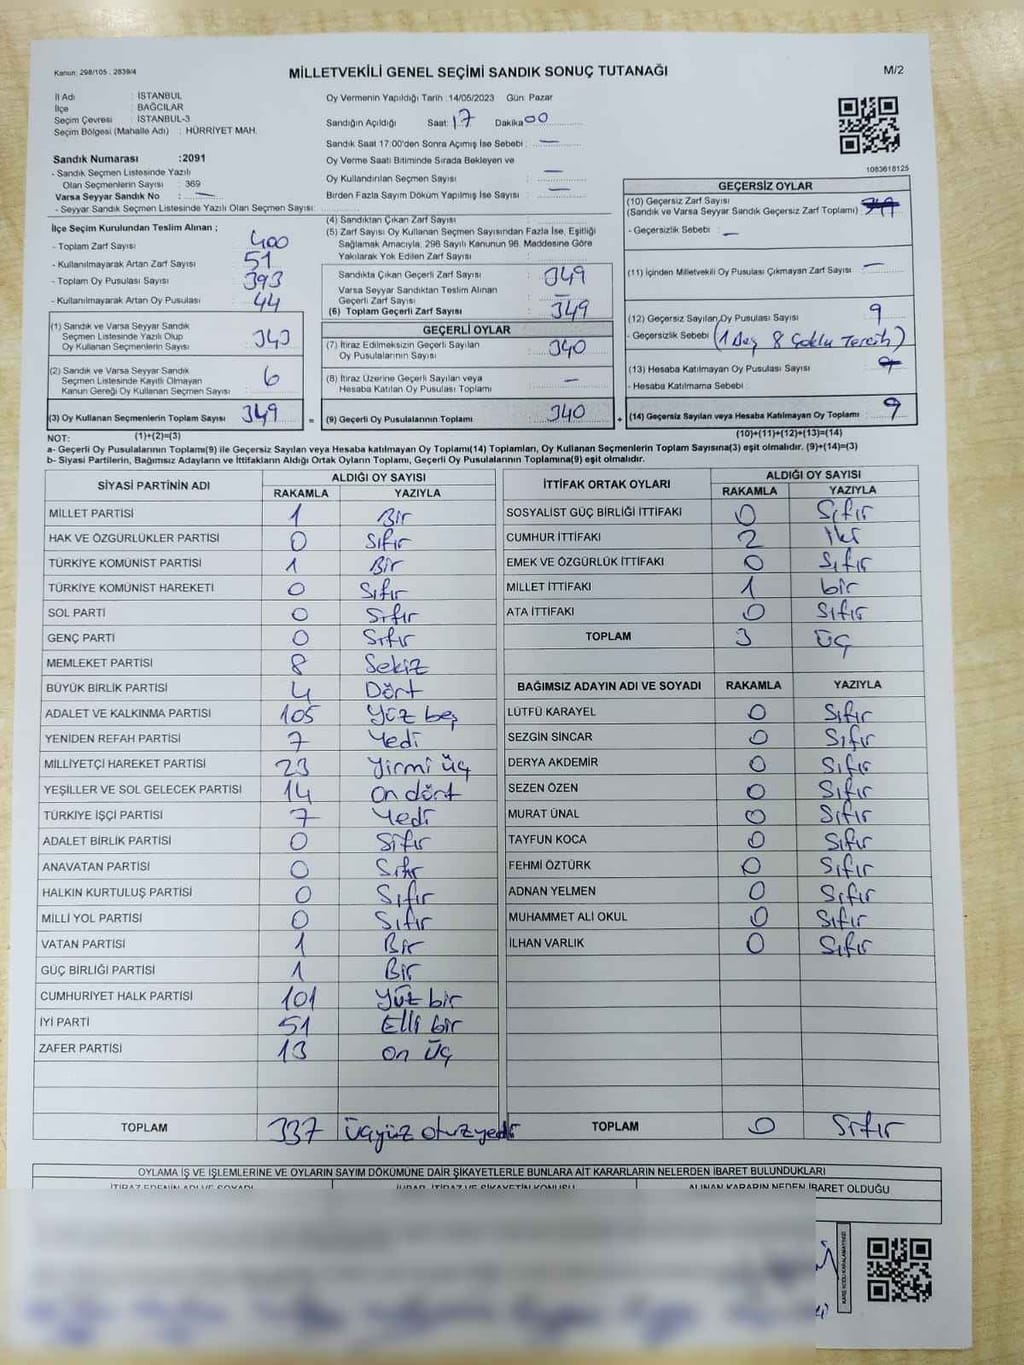 Kanun: 298/105 , 2839/4
MİLLETVEKİLİ GENEL SEÇİMİ SANDIK SONUÇ TUTANAĞI
M/2
İl Adı : İSTANBUL
İlçe : BAĞCILAR
Seçim Çevresi : İSTANBUL-3
Seçim Bölgesi (Mahalle Adı) : HÜRRİYET MAH.
Oy Vermenin Yapıldığı Tarih :14/05/2023 Gün: Pazar
Sandığın Açıldığı Saat: 17 Dakika 00
Sandık Saat 17:00'den Sonra Açımış İse Sebebi : —
Oy Verme Saati Bitiminde Sırada Bekleyen ve
Oy Kullandırılan Seçmen Sayısı : —
Birden Fazla Sayım Döküm Yapılmış İse Sayısı : —
Sandık Numarası :2091
- Sandık Seçmen Listesinde Yazılı
Olan Seçmenlerin Sayısı : 369
Varsa Seyyar Sandık No : —
- Seyyar Sandık Seçmen Listesinde Yazılı Olan Seçmen Sayısı:
1083618125
İlçe Seçim Kurulundan Teslim Alınan ;
- Toplam Zarf Sayısı : 400
- Kullanılmayarak Artan Zarf Sayısı : 51
- Toplam Oy Pusulası Sayısı : 393
- Kullanılmayarak Artan Oy Pusulası : 44
(1) Sandık ve Varsa Seyyar Sandık
Seçmen Listesinde Yazılı Olup
Oy Kullanan Seçmenlerin Sayısı : 343
(2) Sandık ve Varsa Seyyar Sandık
Seçmen Listesinde Kayıtlı Olmayan
Kanun Gereği Oy Kullanan Seçmen Sayısı : 6
(3) Oy Kullanan Seçmenlerin Toplam Sayısı : 349
(1)+(2)=(3)
(4) Sandıktan Çıkan Zarf Sayısı :
(5) Zarf Sayısı Oy Kullanan Seçmen Sayısından Fazla İse, Eşitliği
Sağlamak Amacıyla, 298 Sayılı Kanunun 98. Maddesine Göre
Yakılarak Yok Edilen Zarf Sayısı :
Sandıkta Çıkan Geçerli Zarf Sayısı : 349
Varsa Seyyar Sandıktan Teslim Alınan
Geçerli Zarf Sayısı : —
(6) Toplam Geçerli Zarf Sayısı : 349
GEÇERLİ OYLAR
(7) İtiraz Edilmeksizin Geçerli Sayılan
Oy Pusulalarının Sayısı : 340
(8) İtiraz Üzerine Geçerli Sayılan veya
Hesaba Katılan Oy Pusulası Toplamı : —
= (9) Geçerli Oy Pusulalarının Toplamı : 340 +
GEÇERSİZ OYLAR
(10) Geçersiz Zarf Sayısı
(Sandık ve Varsa Seyyar Sandık Geçersiz Zarf Toplamı) :
- Geçersizlik Sebebi : —
(11) İçinden Milletvekili Oy Pusulası Çıkmayan Zarf Sayısı : —
(12) Geçersiz Sayılan Oy Pusulası Sayısı : 9
- Geçersizlik Sebebi : (1 Boş 8 Çoklu Tercih)
(13) Hesaba Katılmayan Oy Pusulası Sayısı :
- Hesaba Katılmama Sebebi :
(14) Geçersiz Sayılan veya Hesaba Katılmayan Oy Toplamı : 9
(10)+(11)+(12)+(13)=(14)
NOT:
a- Geçerli Oy Pusulalarının Toplamı(9) ile Geçersiz Sayılan veya Hesaba katılmayan Oy Toplamı(14) Toplamları, Oy Kullanan Seçmenlerin Toplam Sayısına(3) eşit olmalıdır. (9)+(14)=(3)
b- Siyasi Partilerin, Bağımsız Adayların ve İttifakların Aldığı Ortak Oyların Toplamı, Geçerli Oy Pusulalarının Toplamına(9) eşit olmalıdır.
SİYASİ PARTİNİN ADI ALDIĞI OY SAYISI
RAKAMLA YAZIYLA
MİLLET PARTİSİ 1 Bir
HAK VE ÖZGÜRLÜKLER PARTİSİ 0 Sıfır
TÜRKİYE KOMÜNİST PARTİSİ 1 Bir
TÜRKİYE KOMÜNİST HAREKETİ 0 Sıfır
SOL PARTİ 0 Sıfır
GENÇ PARTİ 0 Sıfır
MEMLEKET PARTİSİ 8 Sekiz
BÜYÜK BİRLİK PARTİSİ 4 Dört
ADALET VE KALKINMA PARTİSİ 105 Yüz beş
YENİDEN REFAH PARTİSİ 7 Yedi
MİLLİYETÇİ HAREKET PARTİSİ 23 Yirmi üç
YEŞİLLER VE SOL GELECEK PARTİSİ 14 On dört
TÜRKİYE İŞÇİ PARTİSİ 7 Yedi
ADALET BİRLİK PARTİSİ 0 Sıfır
ANAVATAN PARTİSİ 0 Sıfır
HALKIN KURTULUŞ PARTİSİ 0 Sıfır
MİLLİ YOL PARTİSİ 0 Sıfır
VATAN PARTİSİ 1 Bir
GÜÇ BİRLİĞİ PARTİSİ 1 Bir
CUMHURİYET HALK PARTİSİ 101 Yüz bir
İYİ PARTİ 51 Elli bir
ZAFER PARTİSİ 13 On Üç
TOPLAM 337 Üçyüz otuzyedi
İTTİFAK ORTAK OYLARI ALDIĞI OY SAYISI
RAKAMLA YAZIYLA
SOSYALİST GÜÇ BİRLİĞİ İTTİFAKI 0 Sıfır
CUMHUR İTTİFAKI 2 İki
EMEK VE ÖZGÜRLÜK İTTİFAKI 0 Sıfır
MİLLET İTTİFAKI 1 bir
ATA İTTİFAKI 0 Sıfır
TOPLAM 3 Üç
BAĞIMSIZ ADAYIN ADI VE SOYADI RAKAMLA YAZIYLA
LÜTFÜ KARAYEL 0 Sıfır
SEZGİN SİNCAR 0 Sıfır
DERYA AKDEMİR 0 Sıfır
SEZEN ÖZEN 0 Sıfır
MURAT ÜNAL 0 Sıfır
TAYFUN KOCA 0 Sıfır
FEHMİ ÖZTÜRK 0 Sıfır
ADNAN YELMEN 0 Sıfır
MUHAMMET ALİ OKUL 0 Sıfır
İLHAN VARLIK 0 Sıfır
TOPLAM 0 Sıfır
OYLAMA İŞ VE İŞLEMLERİNE VE OYLARIN SAYIM DÖKÜMÜNE DAİR ŞİKAYETLERLE BUNLARA AİT KARARLARIN NELERDEN İBARET BULUNDUKLARI
İTİRAZ EDENİN ADI VE SOYADI İHBAR, İTİRAZ VE ŞİKAYETİN KONUSU ALINAN KARARIN NEDEN İBARET OLDUĞU